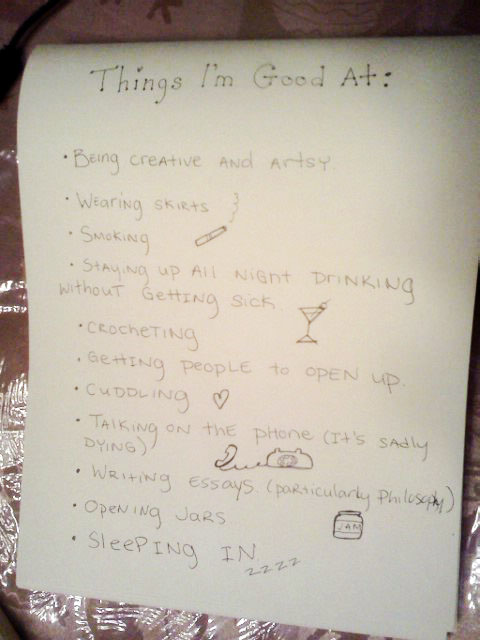 Things I'm Good At:
• Being creative and artsy.
• Wearing skirts
• Smoking
• Staying up all night drinking
without getting sick.
• Crocheting
• Getting people to open up.
• Cuddling
• Talking on the phone (It's sadly
dying)
• Writing essays. (particularly philosophy)
• Opening jars
JAM
• Sleeping in
zzzz